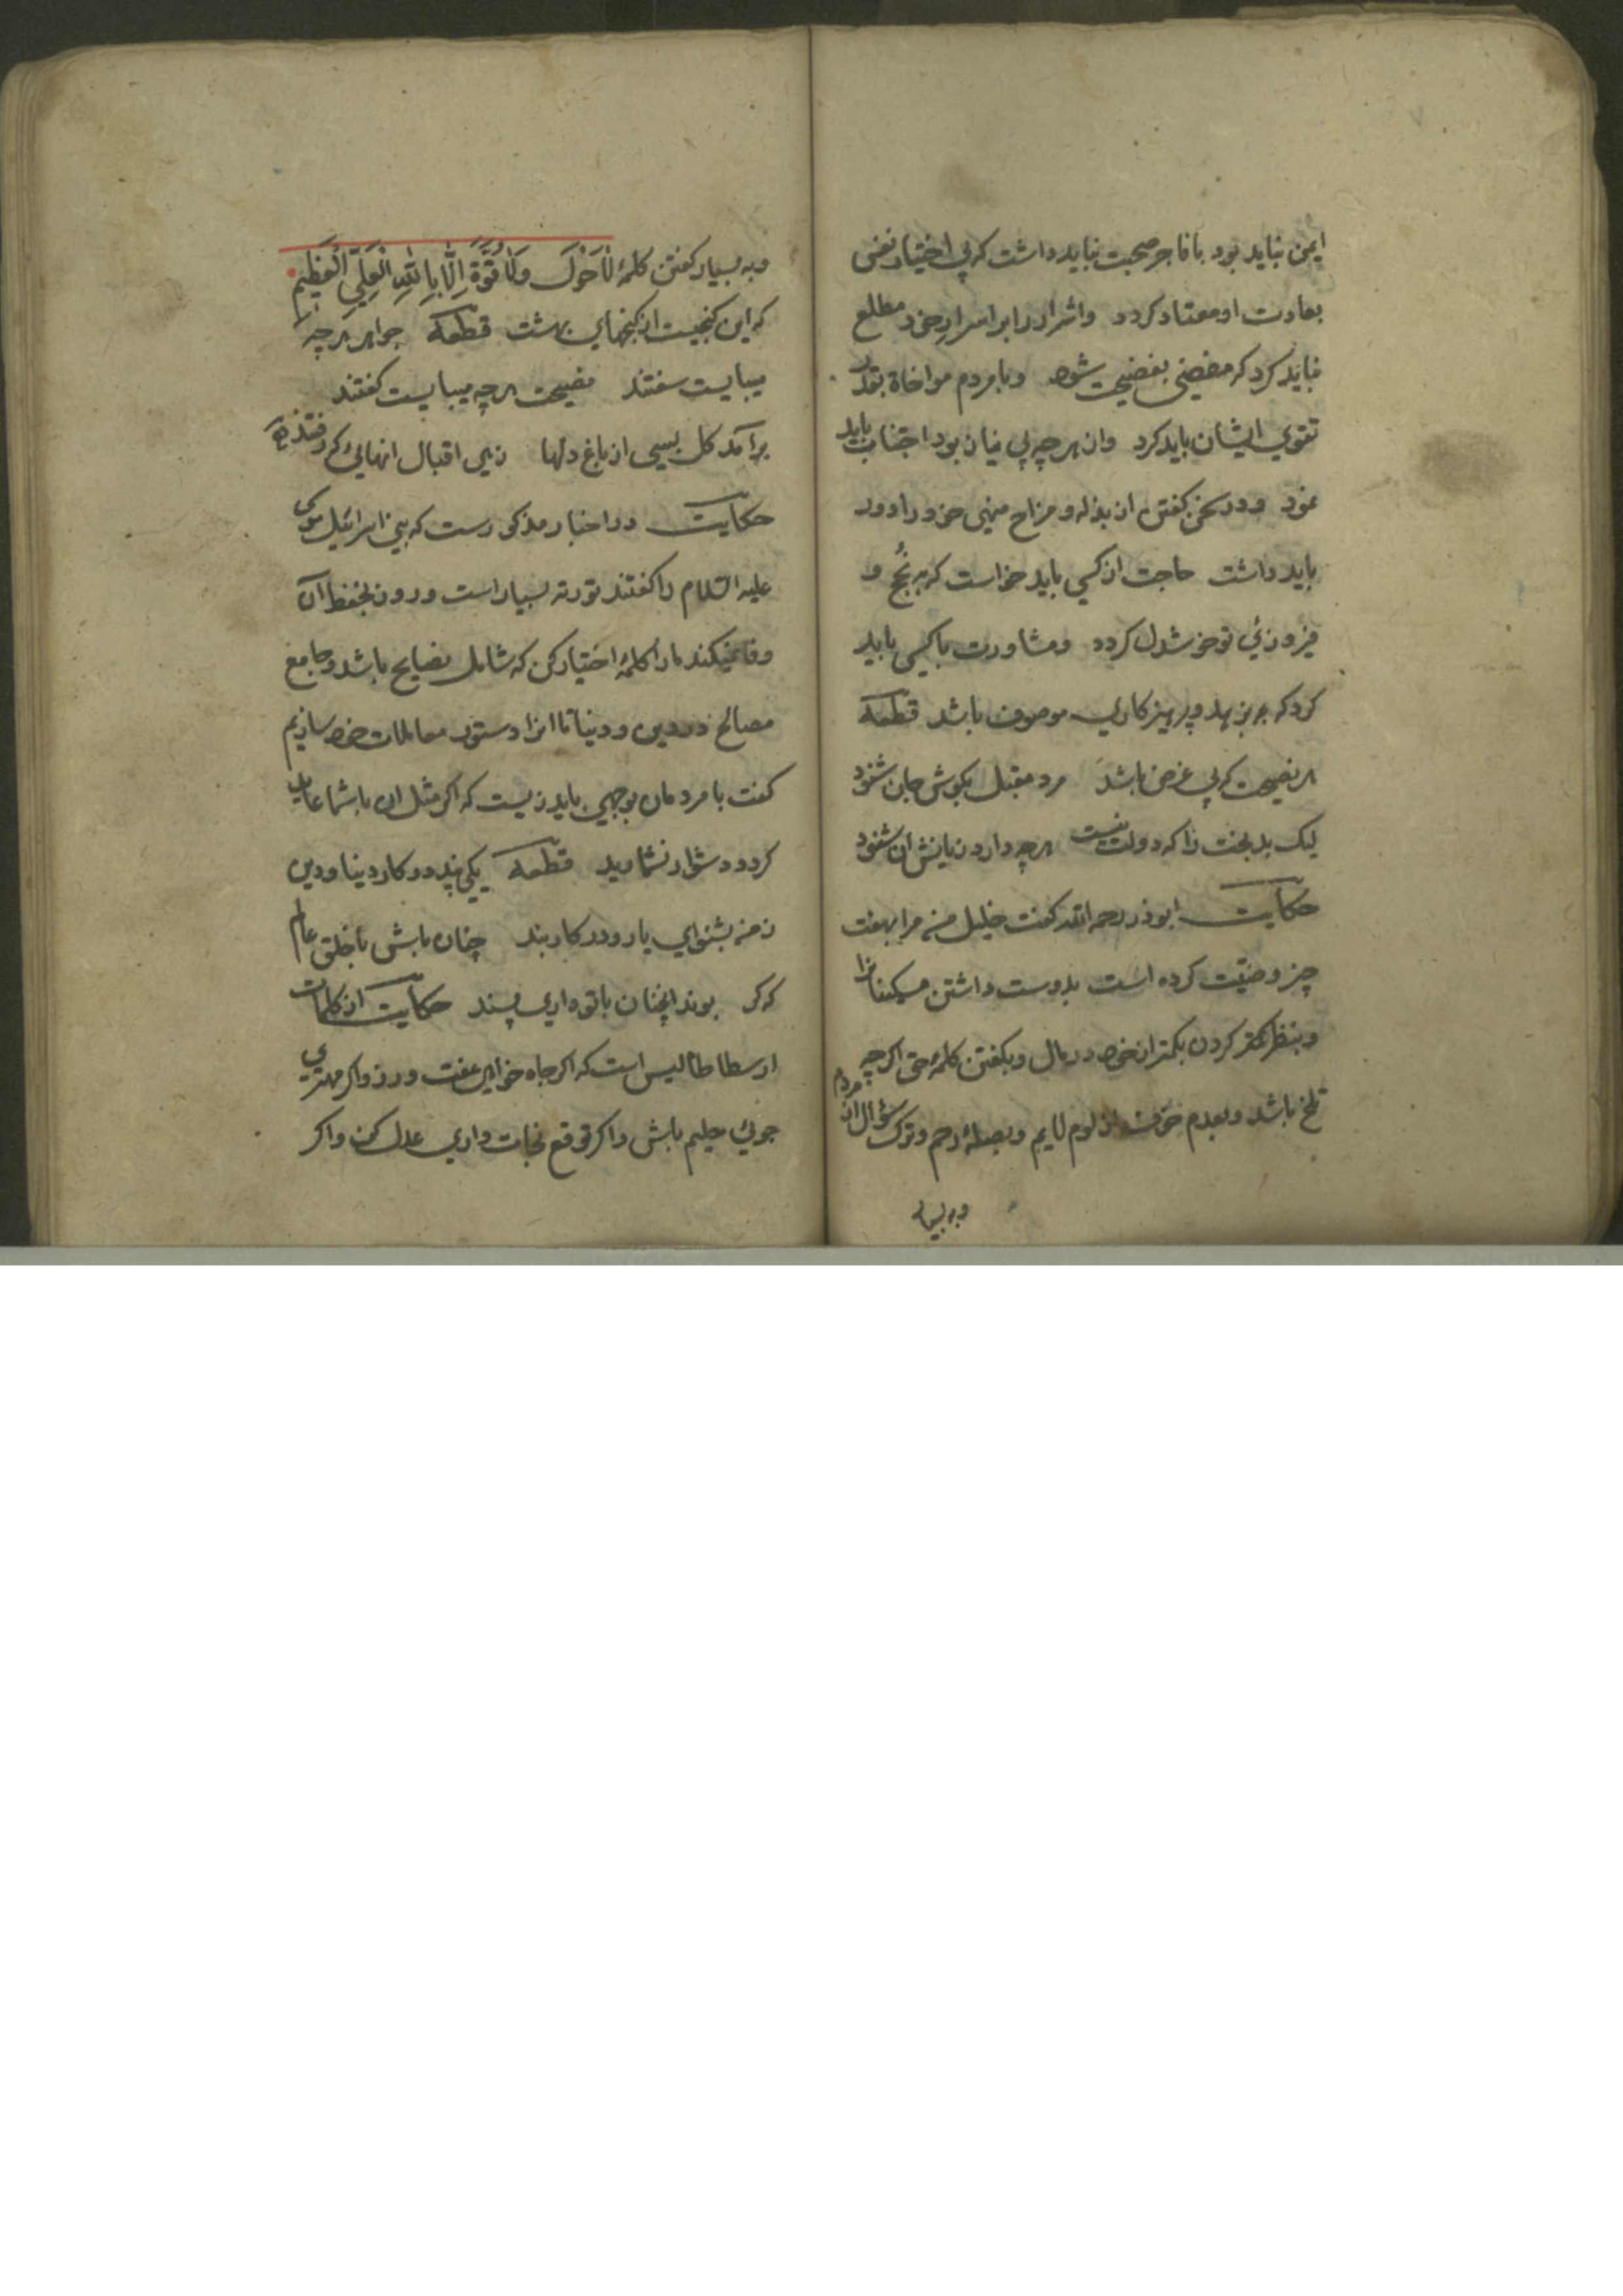 ایمن نباید بود با فاجر صحبت نباید داشت که بی اختیار نفس
بعادت او معتاد کردد واشرار را بر اسرار خود مطلع
نباید کرد که مفضی بفضیحت شود وبا مردم مواخاة بقدر
تقوی ایشان باید کرد واز هرچه بی نیاز بود اجتناب باید
نمود ودر سخن کفتن از بذله ومزاح منهی خود را دور
باید داشت حاجت از کسی باید خواست که به نجح و
فیروزئ تو خوشدل کردد ومشاورت با کسی باید
کرد که بزهد وپرهیزکاری موصوف باشد قطعه
هر نصیحت که بی غرض باشد مرد مقبل بکوش جان شنود
لیک بدبخت را که دولت نیست هرچه دارد زیانش ان شنود
حکایت ابوذر رحمه الله کفت خلیل من مرا بهفت
چیز وصیّت کرده است بدوست داشتن مسکینانرا
وبنظر کمتر کردن بکمتر از خود در مال وبکفتن کلمۀ حق اکرچه
تلخ باشد وبعدم خوف از لوم لایم وبصلۀ رحم وترک سؤال از مردم
وبه بسیار
وبه بسیار کفتن کلمۀ لَاحَوْلَ وَلَاقُوَّةَ اِلَّا بِاللّٰهِ الْعَلِيِّ الْعَظِیْمِ
که این کنجیست از کنجهای بهشت قطعه جواهر هرچه
میبایست سفتند نصیحت هرچه میبایست کفتند
برآمد کل بسی از باغ دلها زهی اقبال انهائی که رفتند
حکایت در اخبار مذکورست که بنی اسرائیل موسی
علیه السّلام را کفتند توریه بسیار است ودرون بحفظ آن
وفا نمیکند ما را کلمۀ اختیار کن که شامل نصایح باشد وجامع
مصالح در دین ودنیا تا انرا دستور معاملات خود سازیم
کفت با مردمان بوجهی باید زیست که اکر مثل ان با شما عاید
کردد دشوار نشمارید قطعه یکی پند در کار دنیا ودین
ز من بشنو ای یار ودر کار بند چنان باش با خلق عالم
که کر بوند انچنان با تو داری پسند حکایت از کلمات
ارسطاطالیس است که اکر جاه خواهی عفت ورز واکر مهتری
جوئی حلیم باش واکر توقع نجات داری عدل کن واکر